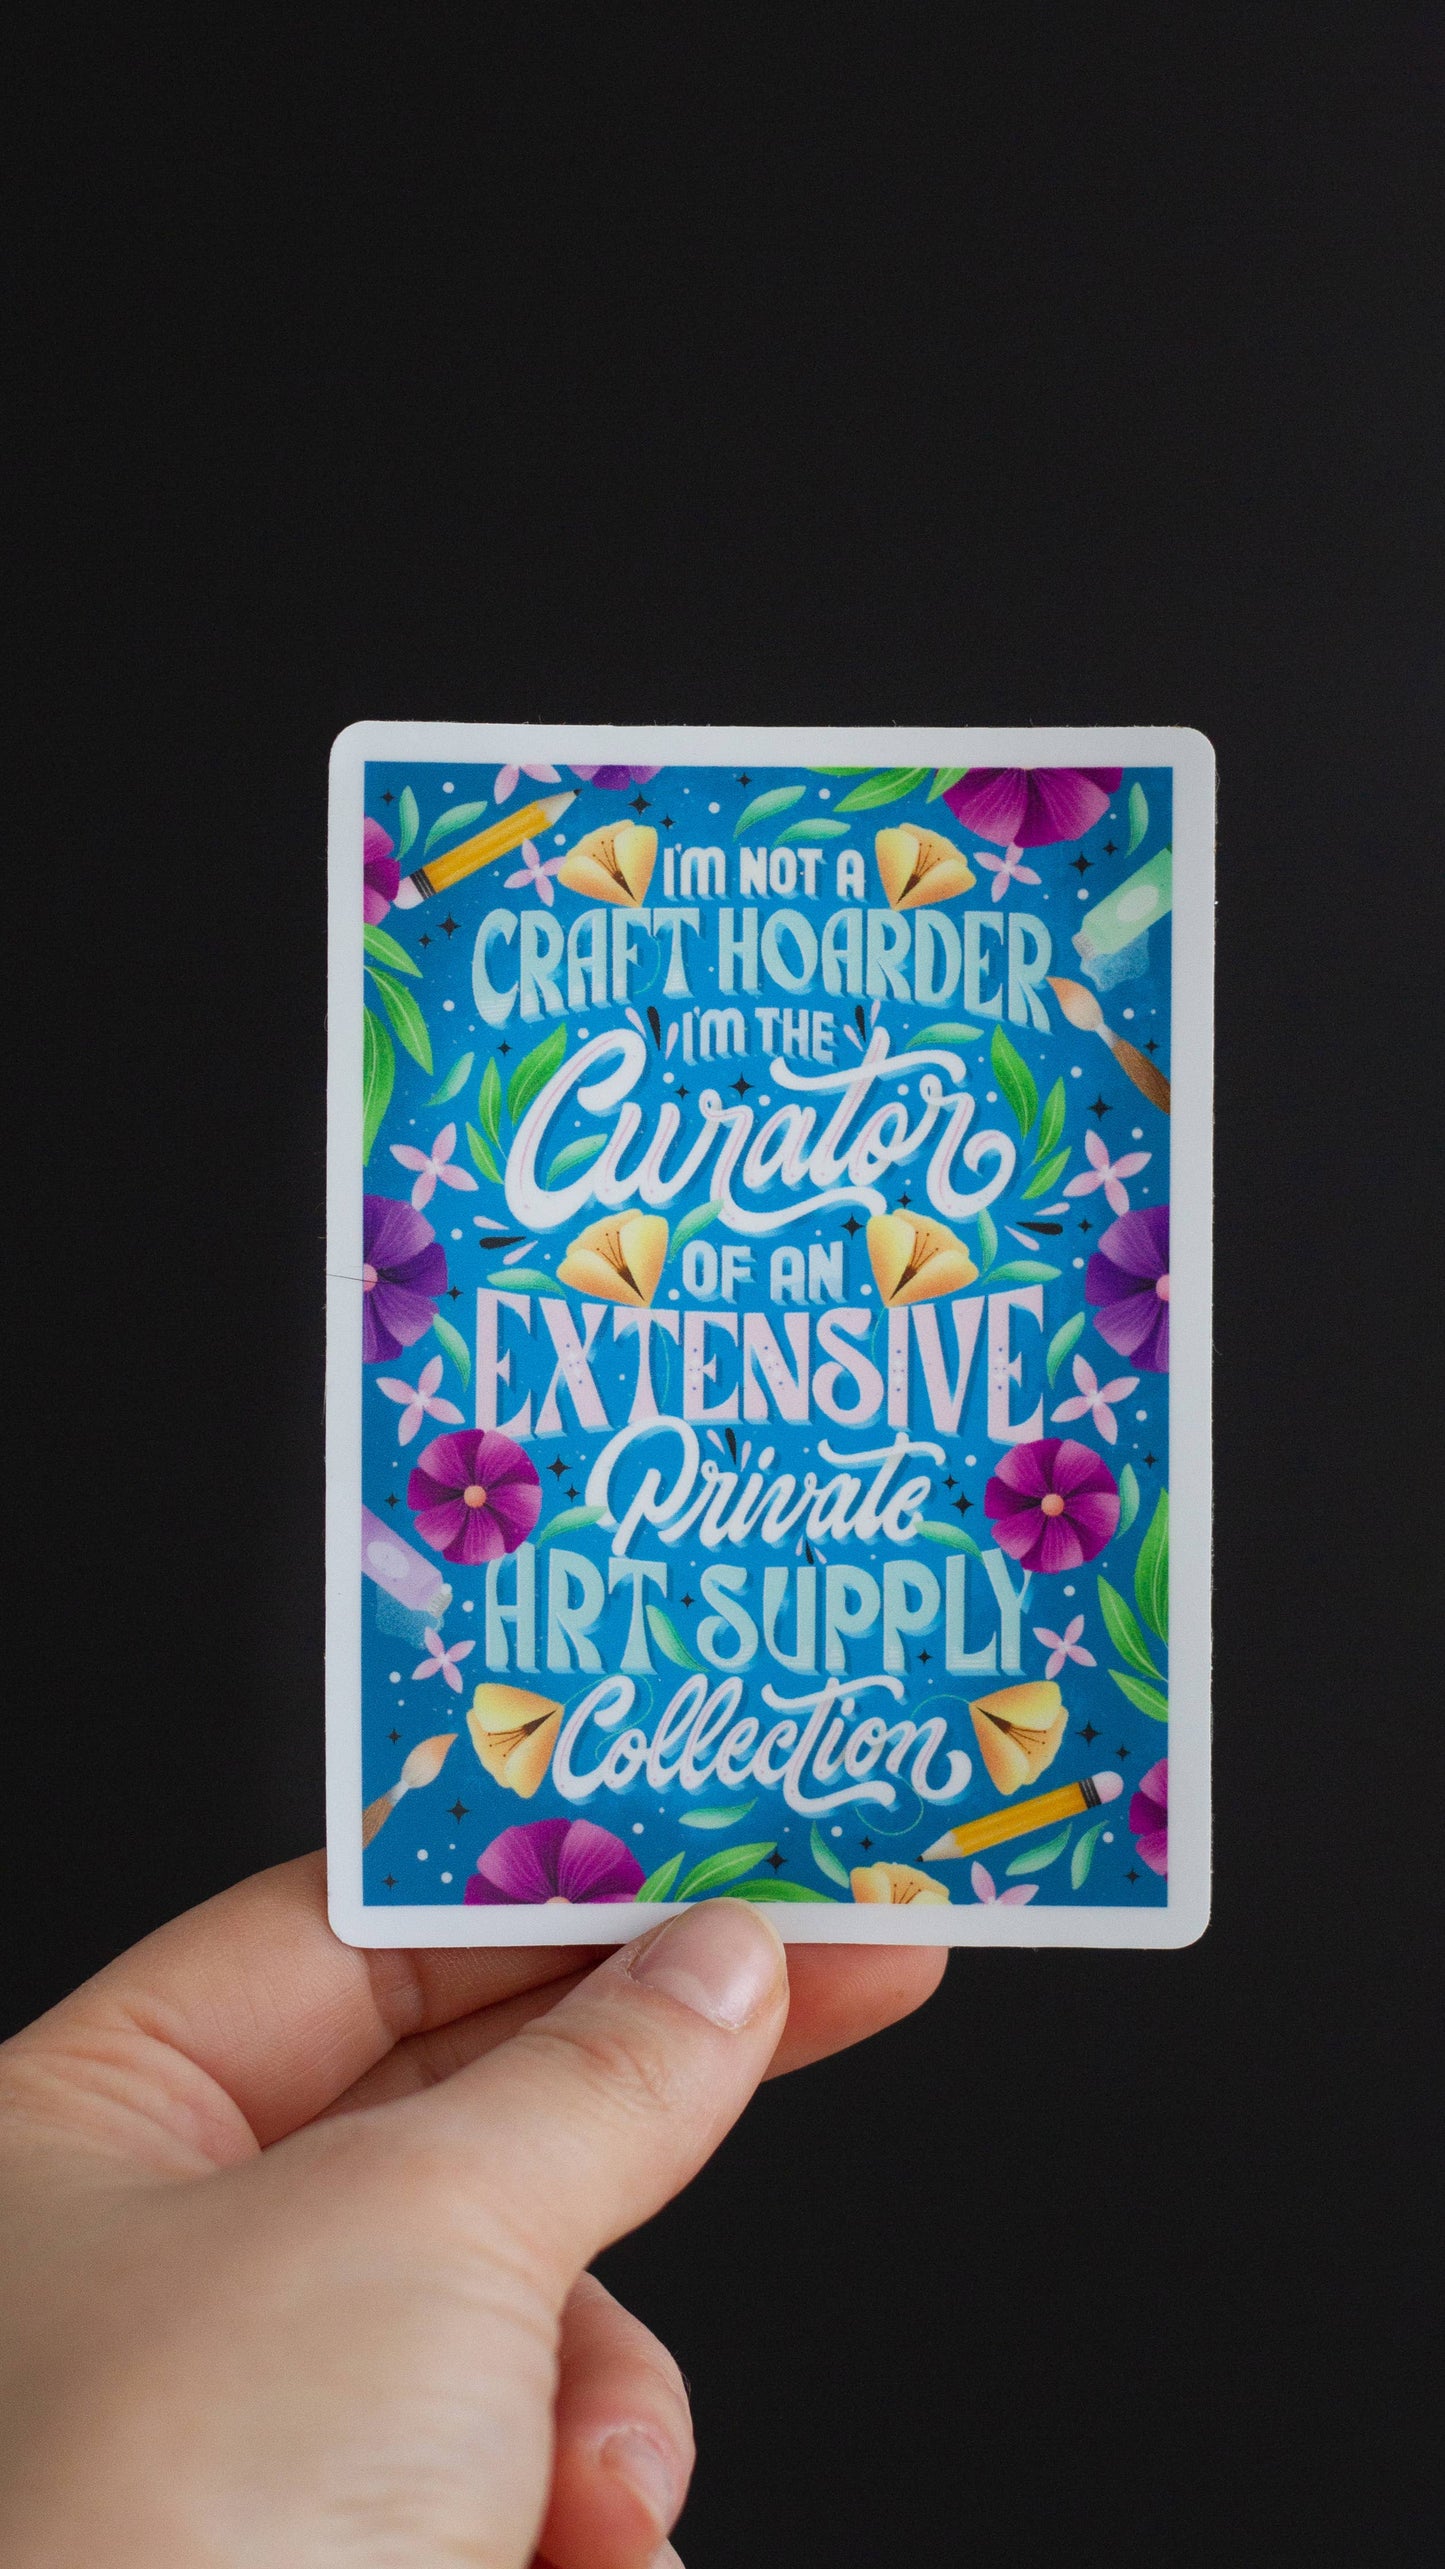 I'M NOT A
CRAFT HOARDER
I'M THE
Curator
OF AN
EXTENSIVE
Private
ART SUPPLY
Collection